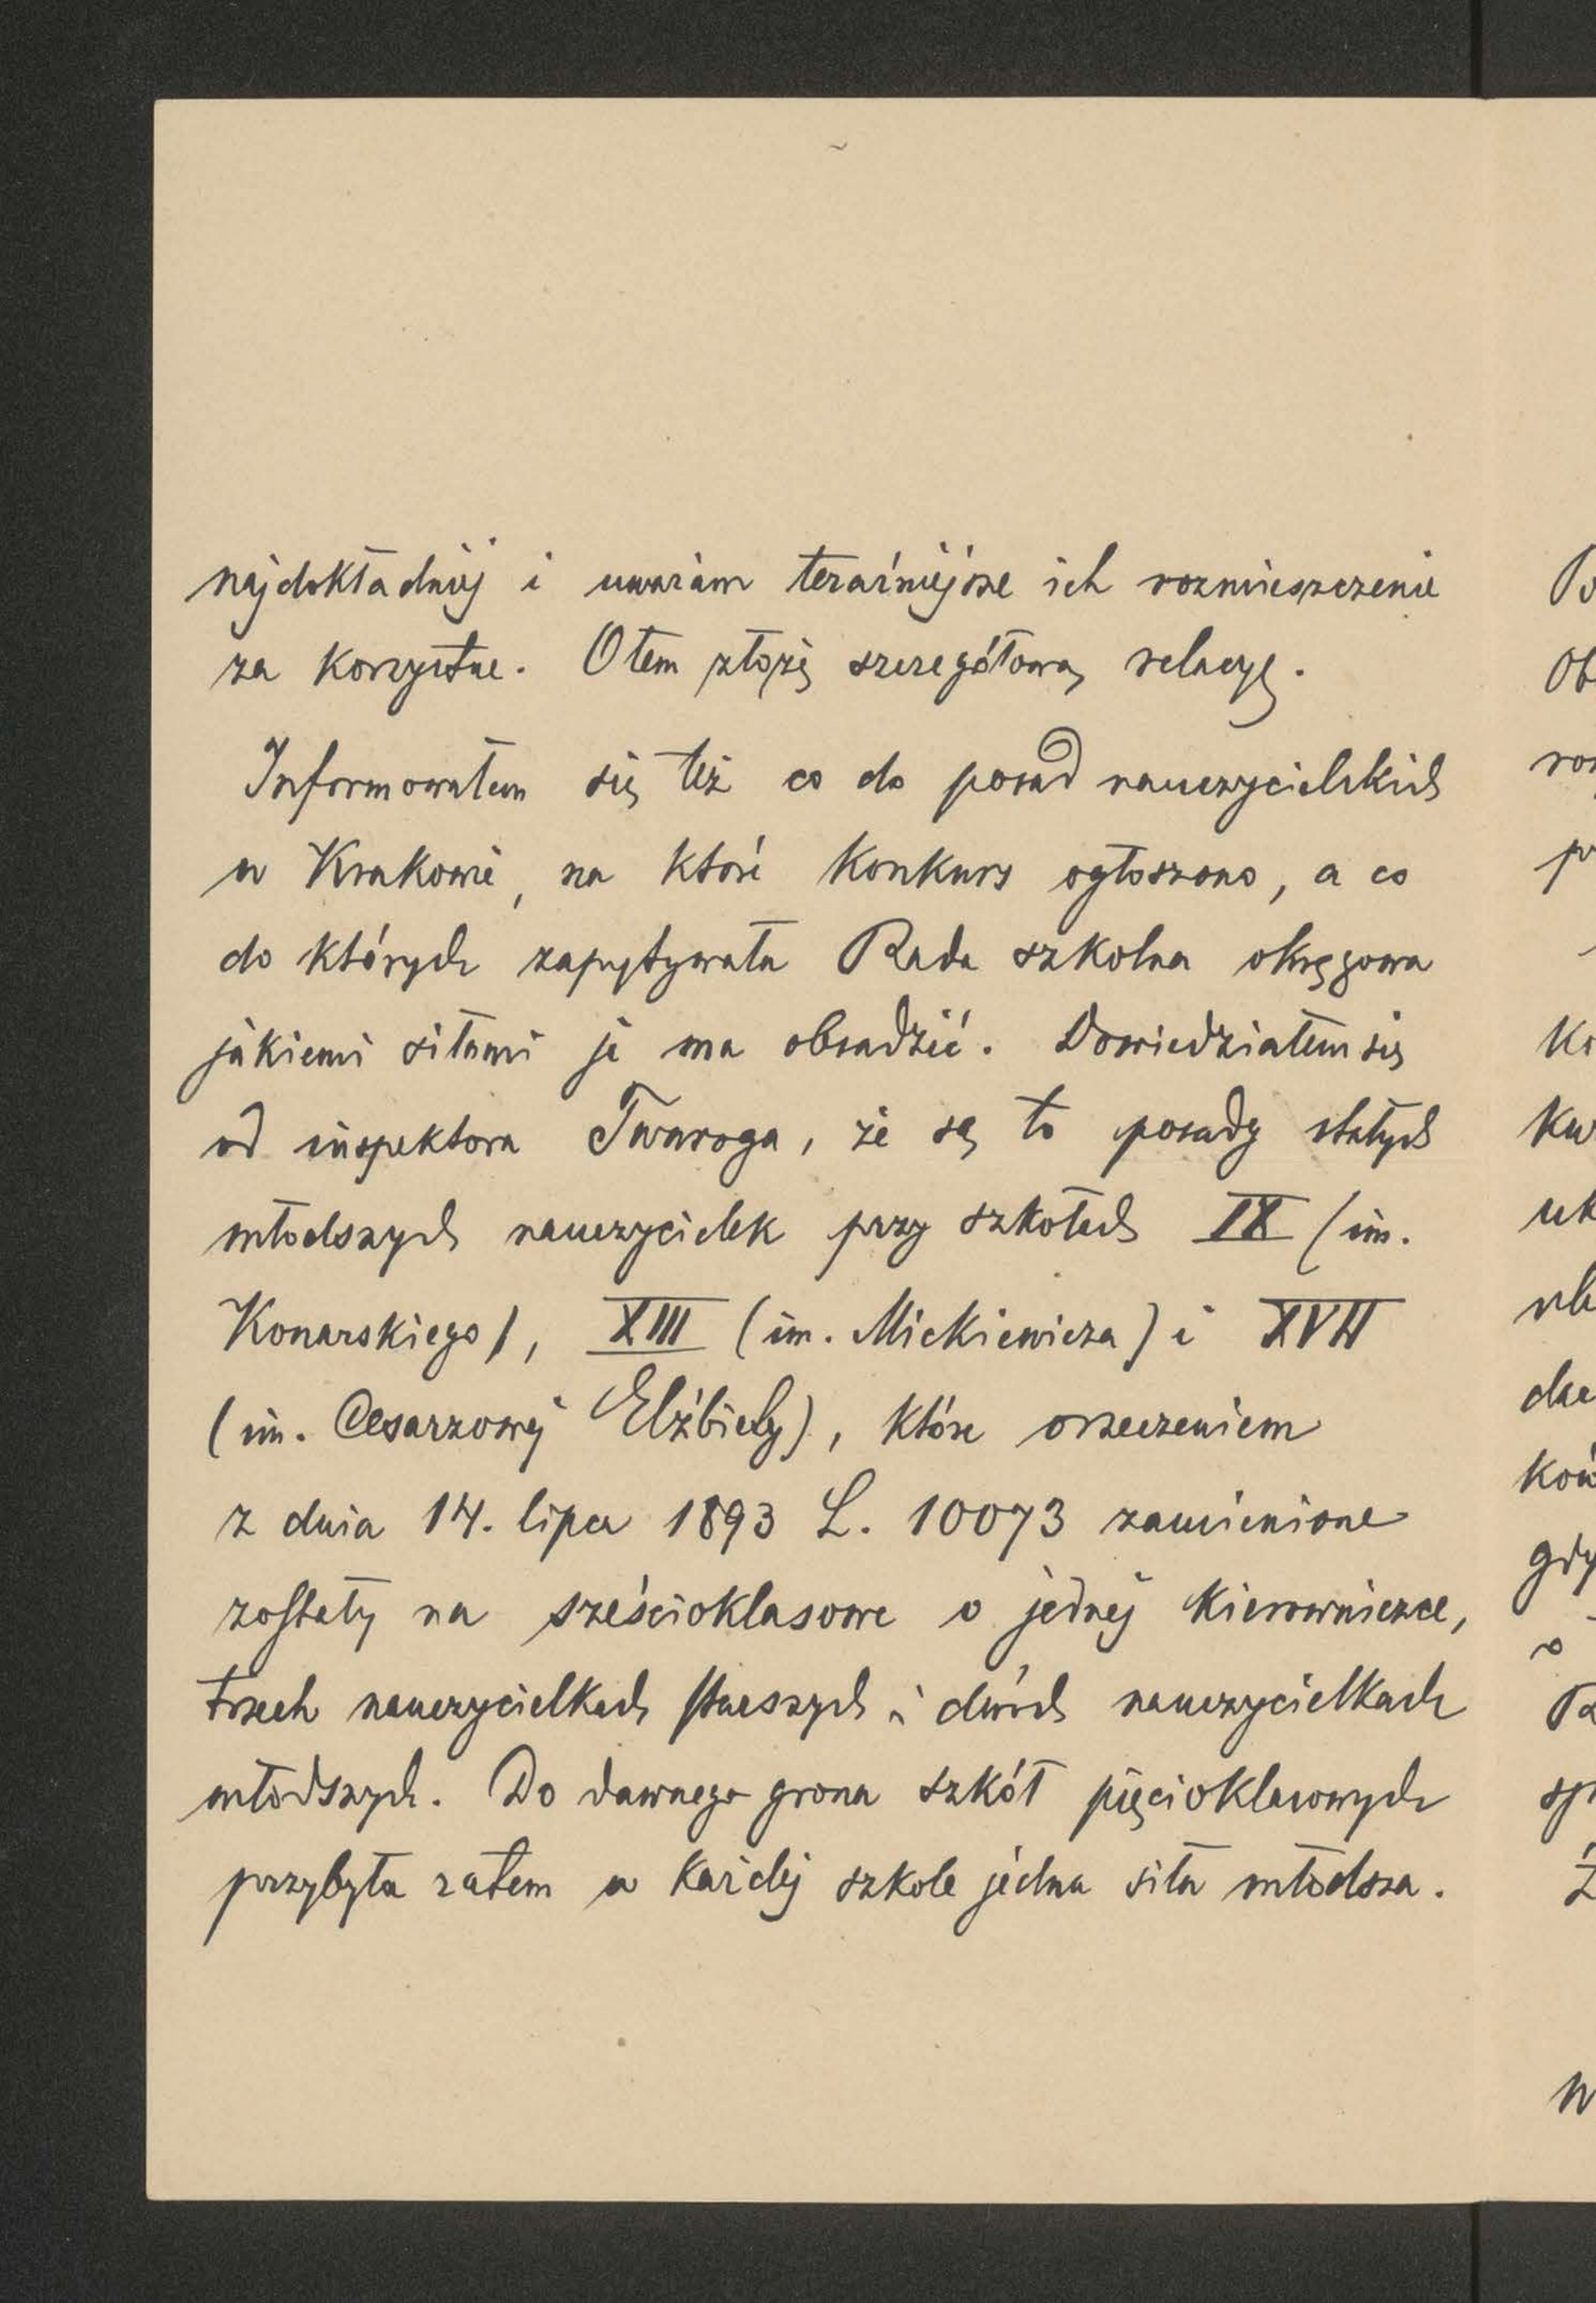 najdokładniej i uważam teraźniejsze ich rozmieszczenie
za korzystne. O tem złożę szczegółową relacyę.
Informowałem się też co do posad nauczycielskich
w Krakowie, na które konkurs ogłoszono, a co
do których zapytywała Rada szkolna okręgowa
jakiemi siłami je ma obsadzić. Dowiedziałem się
od inspektora Twaroga, że są to posady stałych
młodszych nauczycielek przy szkołach IX (im.
Konarskiego), XIII (im. Mickiewicza) i XVII
(im. Cesarzowej Elżbiety), które orzeczeniem
z dnia 14. lipca 1893 L. 10073 zamienione
zostały na sześcioklasowe o jednej kierowniczce,
trzech nauczycielkach starszych i dwóch nauczycielkach
młodszych. Do dawnego grona szkół pięcioklasowych
przybyła zatem w każdej szkole jedna siła młodsza.